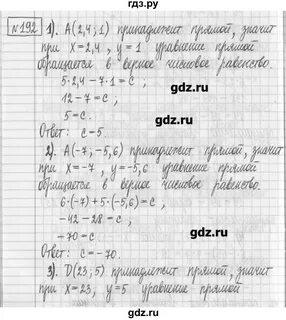 №192 1). A(2,4; 1) принадлежит прямой, значит
при x=2,4, y=1 уравнение прямой
обращается в верное числовое равенство.
5·2,4-7·1=c ;
12-7=c ;
5=c.
Ответ: c=5.
2). A(-7; -5,6) принадлежит прямой, значит
при x=-7, y=-5,6 уравнение прямой
обращается в верное числовое равенство.
6·(-7)+5·(-5,6)=c ;
-42-28=c ;
-70=c.
Ответ: c=-70.
3). D(23; 5) принадлежит прямой, значит
при x=23, y=5 уравнение прямой
gdz.ru
gdz.ru
gdz.ru
gdz.ru
gdz.ru
gdz.ru